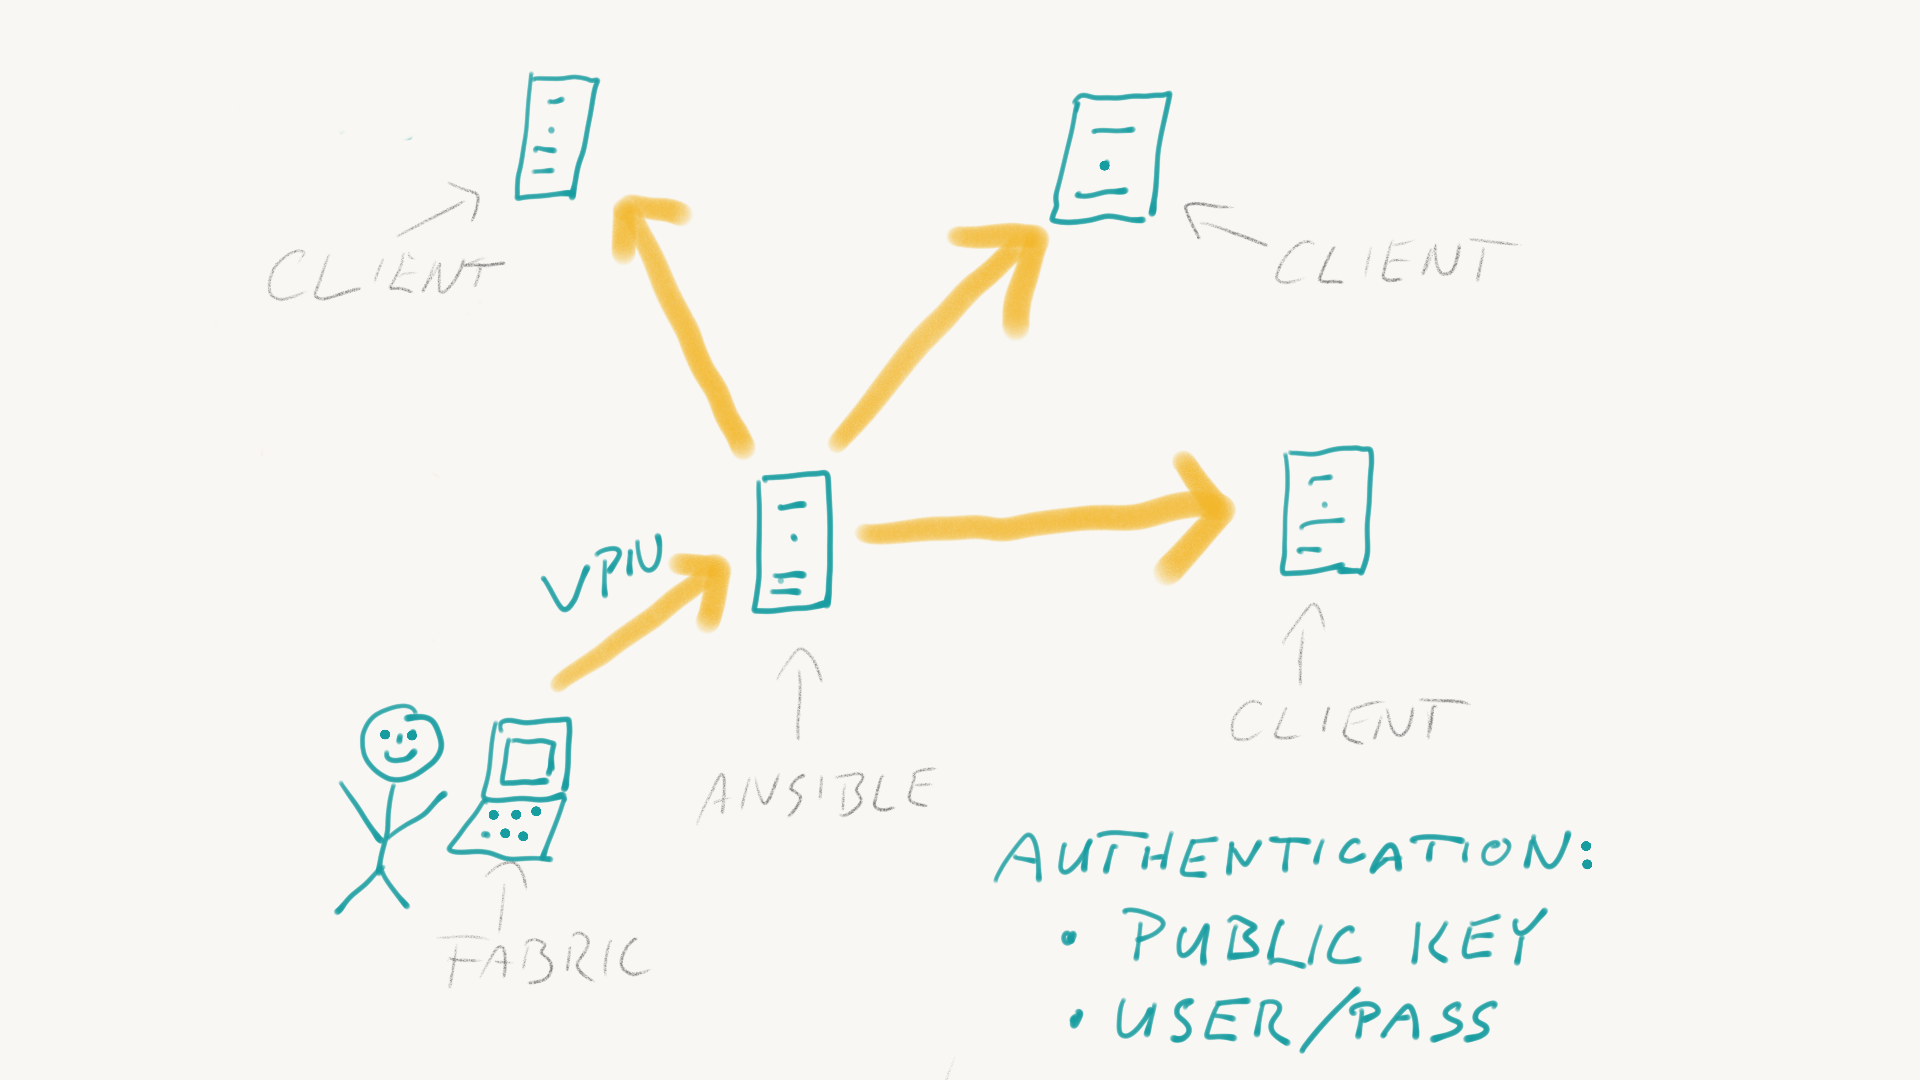 CLIENT
CLIENT
VPN
CLIENT
ANSIBLE
FABRIC
AUTHENTICATION:
• PUBLIC KEY
• USER/PASS